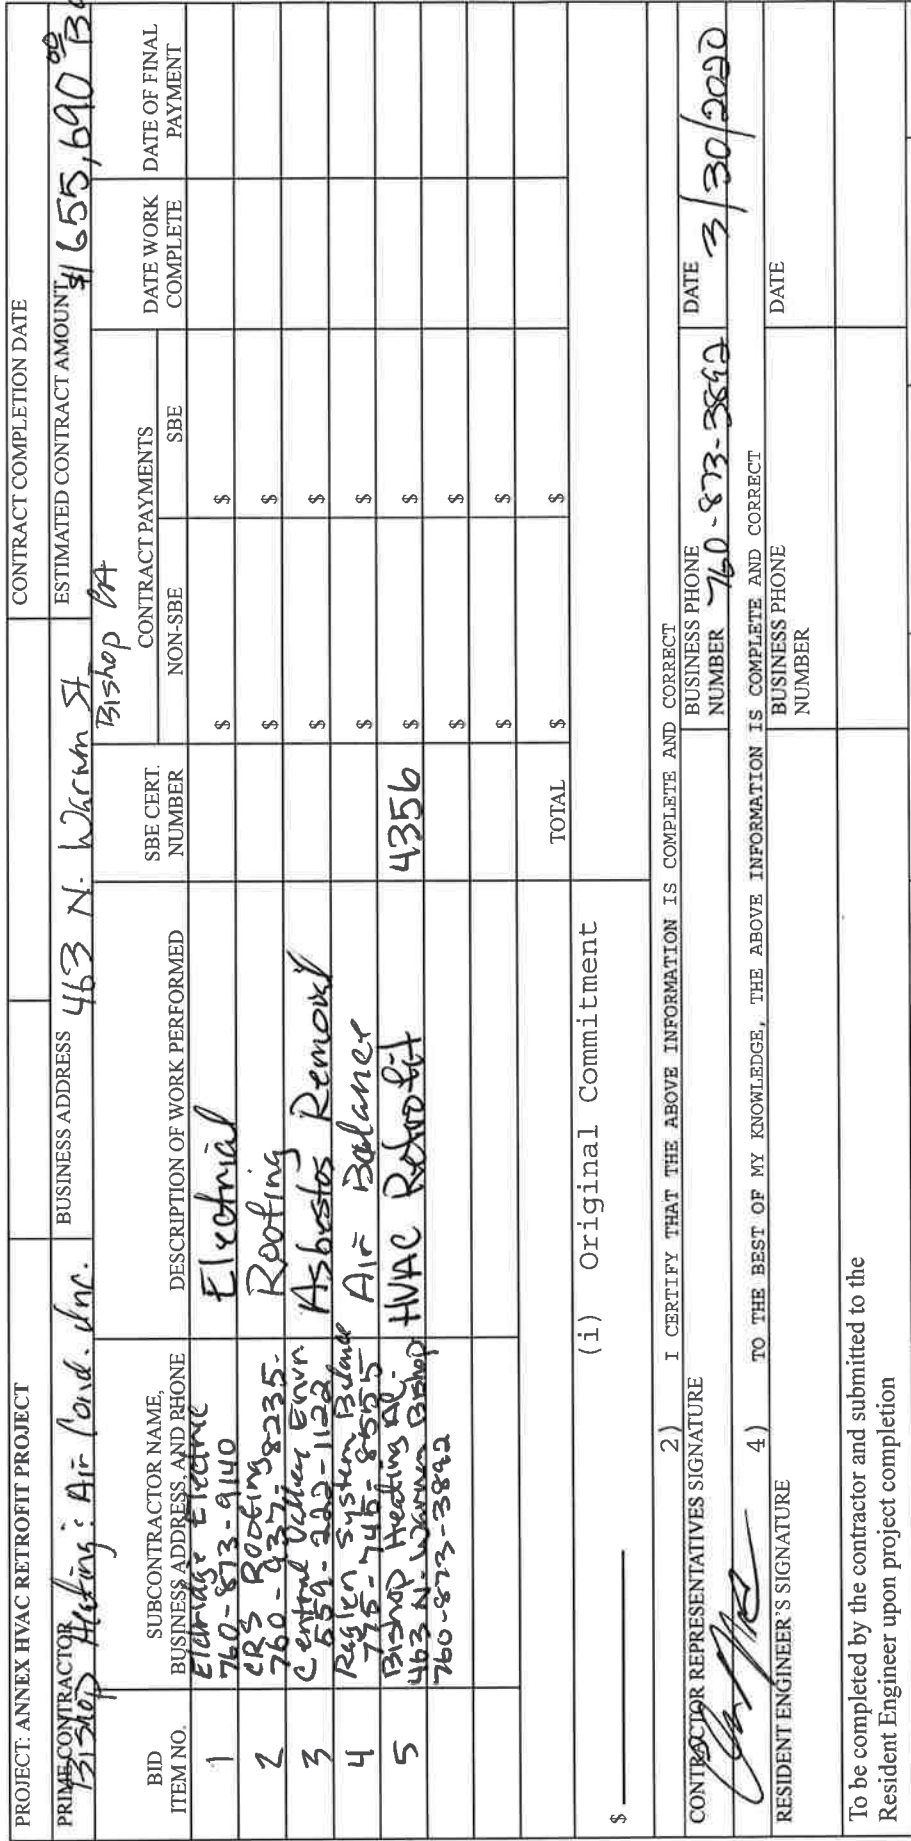 PROJECT: ANNEX HVAC RETROFIT PROJECT
CONTRACT COMPLETION DATE
PRIME CONTRACTOR
Bishop Heating : Air Cond. Inc.
BUSINESS ADDRESS 463 N. Warren St.
Bishop CA
ESTIMATED CONTRACT AMOUNT
$1655,690 00
BID
ITEM NO.
SUBCONTRACTOR NAME,
BUSINESS ADDRESS, AND PHONE
DESCRIPTION OF WORK PERFORMED
SBE CERT.
NUMBER
CONTRACT PAYMENTS
NON-SBE
SBE
DATE WORK
COMPLETE
DATE OF FINAL
PAYMENT
1 Eldridge Electric Electrial $ $
760-873-9140
2 CRS Roofing Roofing $ $
760-937-8235-
3 Central Valley Envn Asbestos Removal $ $
559-222-1122
4 Raglen System Balance Air Balance $ $
775-746-8555
5 Bishop Heating AC- HVAC Retrofit 4356 $ $
463 N. Warren Bishop
760-873-3892 $ $
$ $
TOTAL $ $
(i) Original Commitment
$
2) I CERTIFY THAT THE ABOVE INFORMATION IS COMPLETE AND CORRECT
CONTRACTOR REPRESENTATIVES SIGNATURE
BUSINESS PHONE
NUMBER 760-873-3892
DATE 3/30/2020
4) TO THE BEST OF MY KNOWLEDGE, THE ABOVE INFORMATION IS COMPLETE AND CORRECT
RESIDENT ENGINEER'S SIGNATURE
BUSINESS PHONE
NUMBER
DATE
To be completed by the contractor and submitted to the
Resident Engineer upon project completion